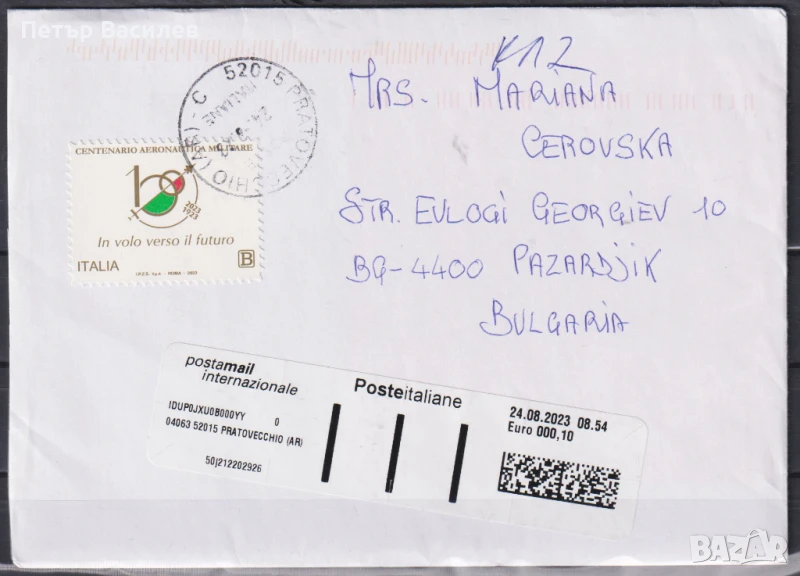 Петър Василев
K12
MRS. MARIANA
CEROVSKA
STR. EVLOGI GEORGIEV 10
BG-4400 PAZARDJIK
BULGARIA
52015 PRATOVECCHIO (AR) - C
CENTENARIO AERONAUTICA MILITARE
100
2023
1923
In volo verso il futuro
ITALIA B
I.P.Z.S. S.p.A. - ROMA - 2023
postamail
internazionale
Posteitaliane
IDUP0JXU0B000YY 0
04063 52015 PRATOVECCHIO (AR)
50j212202926
24.08.2023 08.54
Euro 000,10
BAZAR